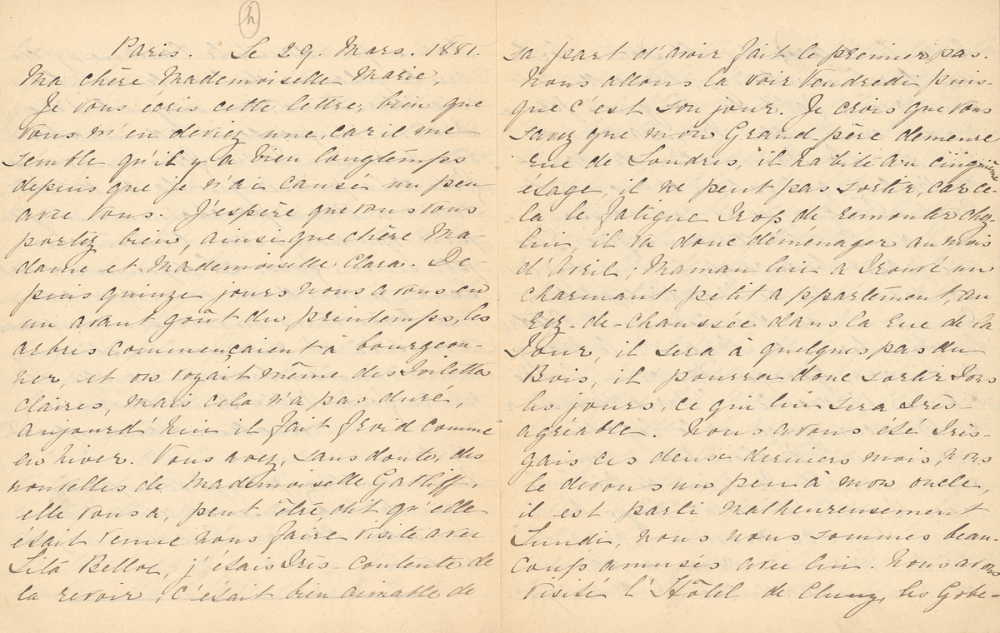 4
Paris. Le 29. Mars. 1881.
Ma chère Mademoiselle Marie,
Je vous écris cette lettre, bien que
vous m'en deviez une, car il me
semble qu'il y a bien longtemps
depuis que je n'ai causé un peu
avec vous. J'espère que vous vous
portez bien, ainsi que chère Ma-
dame et Mademoiselle Clara. De-
puis quinze jours nous avons eu
un avant goût du printemps, les
arbres commençaient à bourgeon-
ner, et on voyait même des toilettes
claires, mais cela n'a pas duré,
aujourd'hui il fait froid comme
en hiver. Vous avez, sans doute, des
nouvelles de Mademoiselle
elle vous a, peut être dit qu'elle
était venue nous faire visite avec
j'étais très-contente de
la revoir, c'était bien aimable de
sa part d'avoir fait le premier pas.
Nous allons la voir Vendredi puis-
que c'est son jour. Je crois que vous
savez que mon Grand-père demeure
rue de Londres, il habite au cinquième
étage, il ne peut pas sortir, car ce-
la le fatigue trop de remonter chez-
lui, il va donc déménager au mois
d'Avril; Maman lui a trouvé un
charmant petit appartement, au
Rez-de-chaussée dans la Rue de la
Tour, il sera à quelques pas du
Bois, il pourra donc sortir tous
les jours, ce qui lui sera très-
agréable. Nous avons été très-
gais ces deux derniers mois, nous
le devons un peu à mon oncle,
il est parti malheureusement
Lundi, nous nous sommes beau-
coup amusés avec lui. Nous avons
visité l'Hôtel de Cluny, les Gobe-